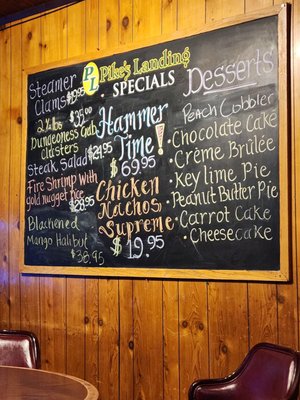 PL
Pike's Landing
SPECIALS
Steamer
Clams $19.95
2 ½ lbs $35.00
Dungeness Crab
Clusters
Steak Salad $21.95
Fire Shrimp with
gold nugget rice
$28.95
Blackened
Mango Halibut
$38.95
Hammer
Time!
$69.95
Chicken
Nachos
Supreme
$19.95
Desserts
Peach Cobbler
• Chocolate Cake
• Crème Brûlée
• Key lime Pie
• Peanut Butter Pie
• Carrot Cake
• Cheesecake